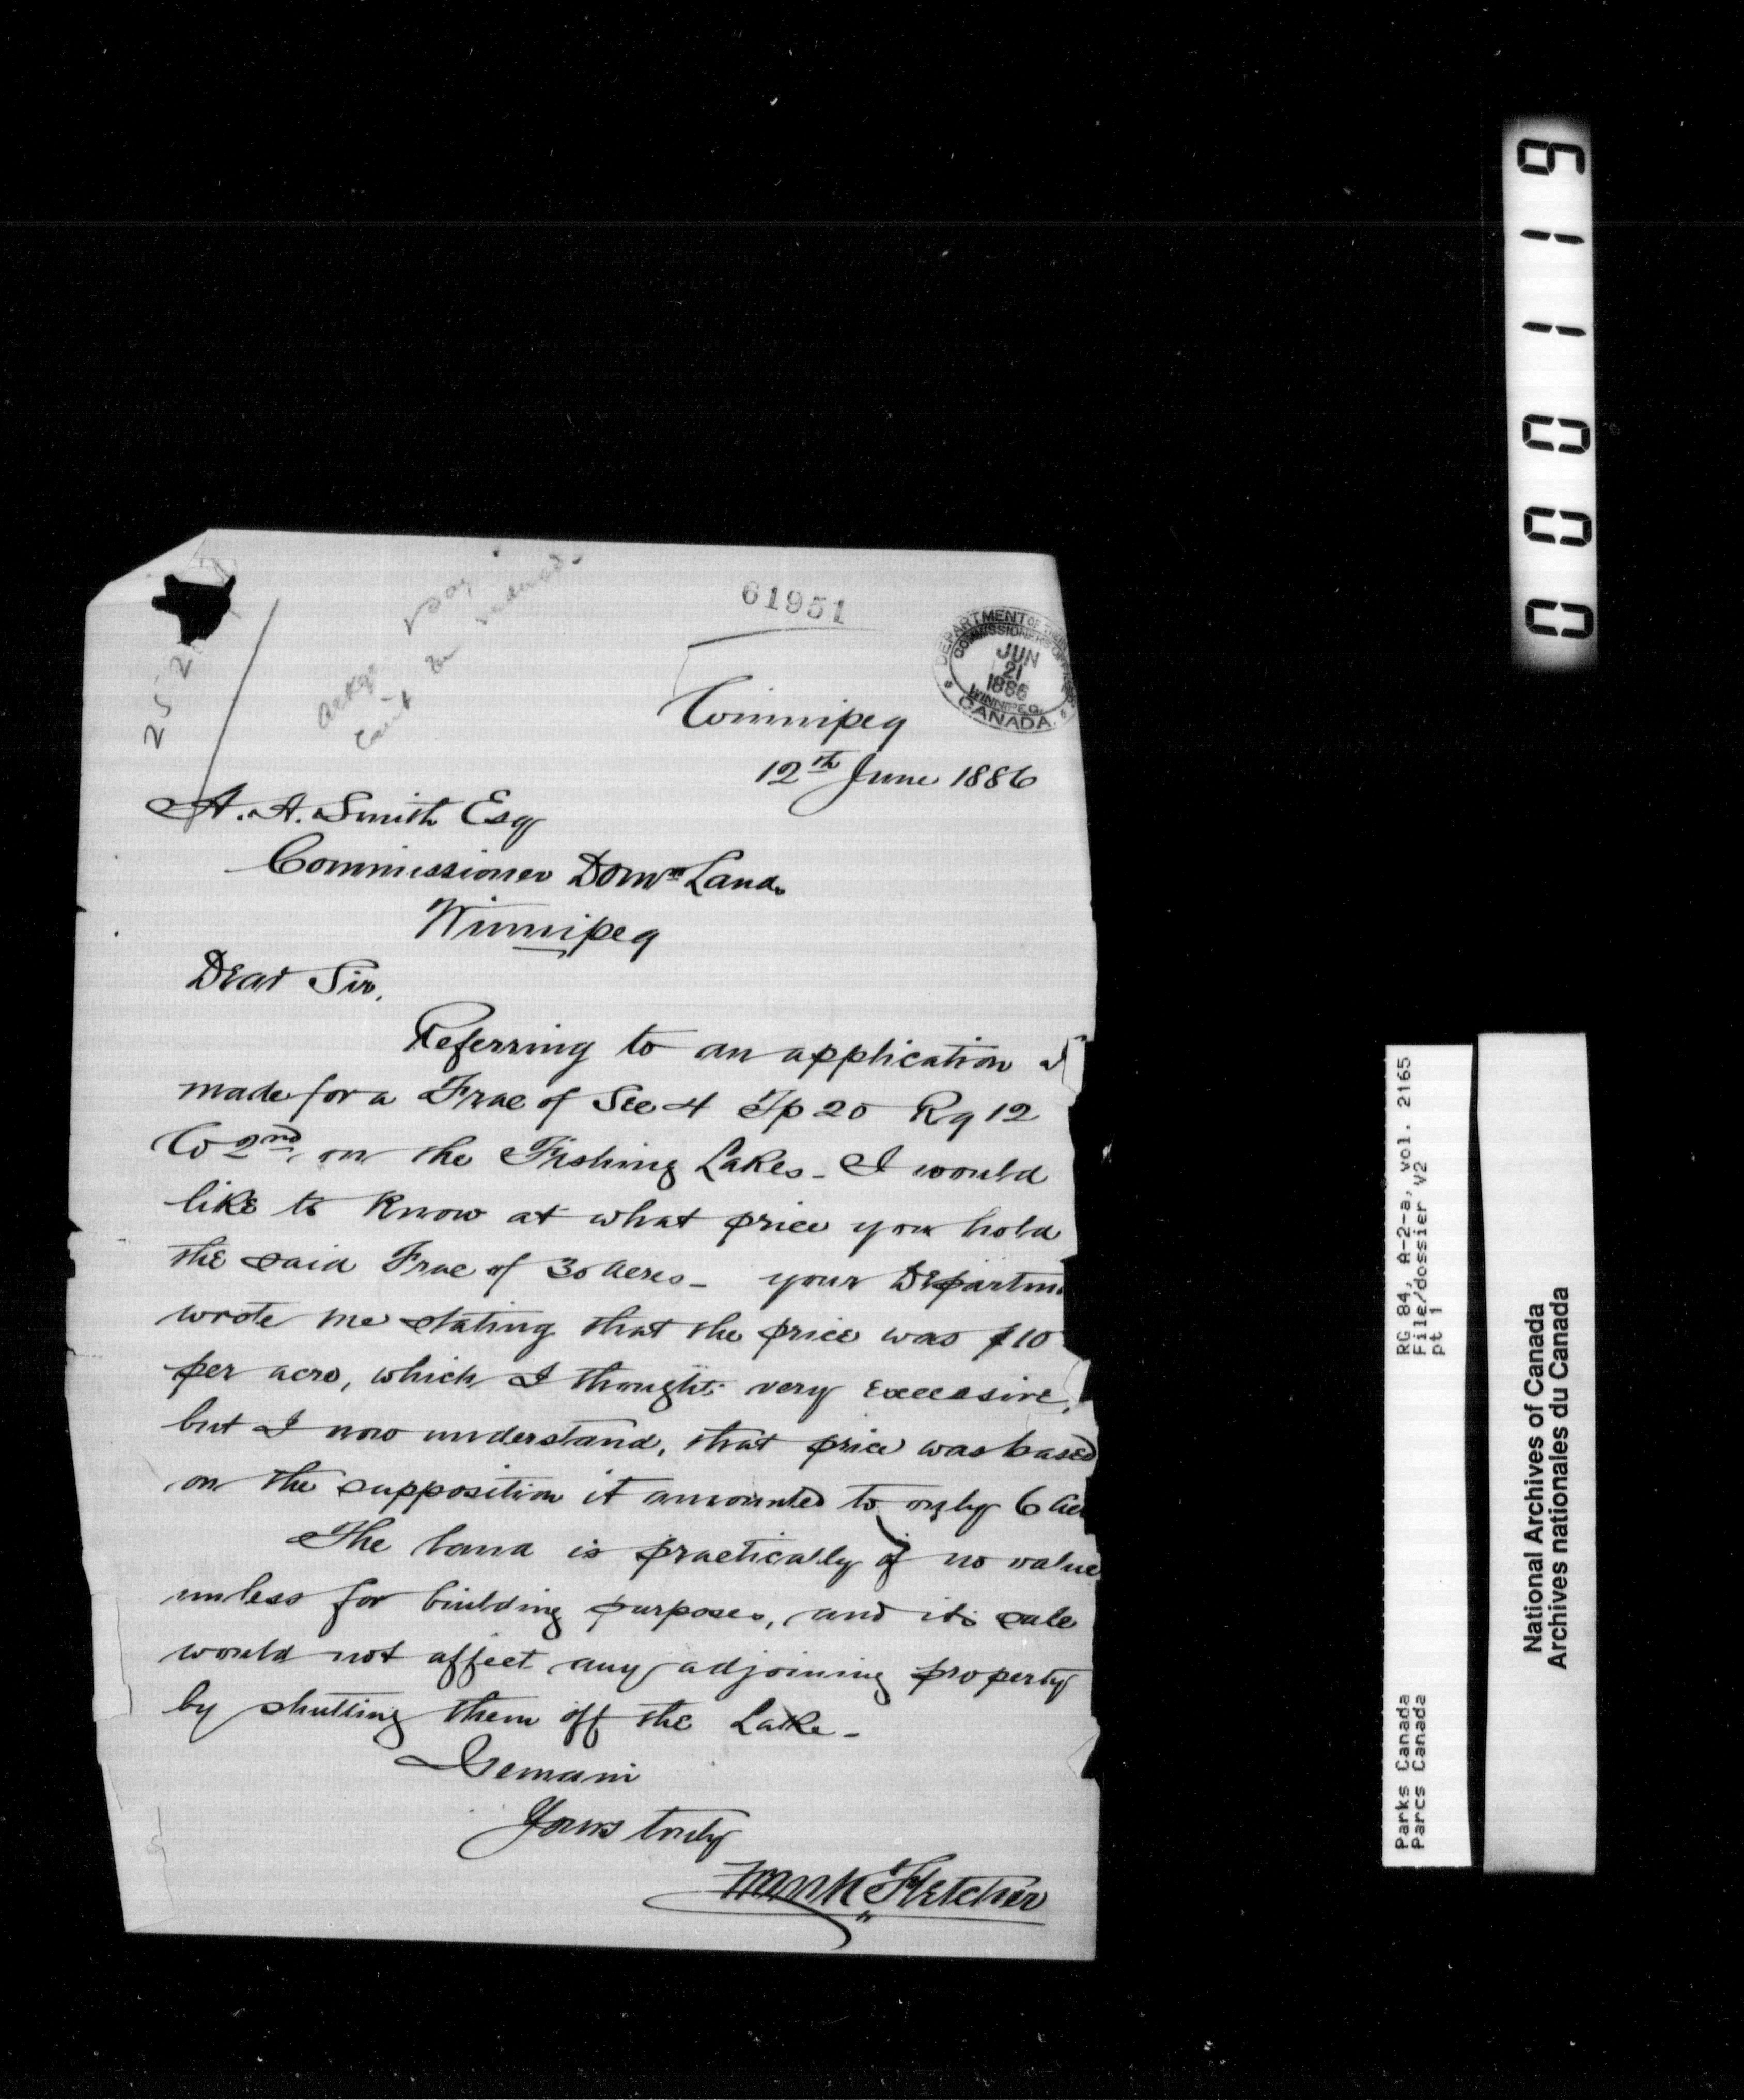 61951
DEPARTMENT OF THE INTERIOR
COMMISSIONER'S OFFICE
JUN
21
1886
WINNIPEG.
CANADA
252
Ackge & say
Can't be reduced.
Winnipeg
12th June 1886
A. A. Smith Esq
Commissioner Domn Lands
Winnipeg
Dear Sir,
Referring to an application I
made for a Frac of Sec 4 Tp 20 Rg 12
W 2nd, on the Fishing Lakes - I would
like to know at what price you hold
the said Frac of 30 acres - your Departm
wrote me stating that the price was $10
per acre, which I thought very excessive,
but I now understand, that price was based
on the supposition it amounted to only 6 ac
The land is practically of no value
unless for building purposes, and its sale
would not affect any adjoining property
by shutting them off the Lake -
I remain
Yours truly
Frank Fletcher
000119
RG 84, A-2-a, vol. 2165
File/dossier V2
pt 1
Parks Canada
Parcs Canada
National Archives of Canada
Archives nationales du Canada